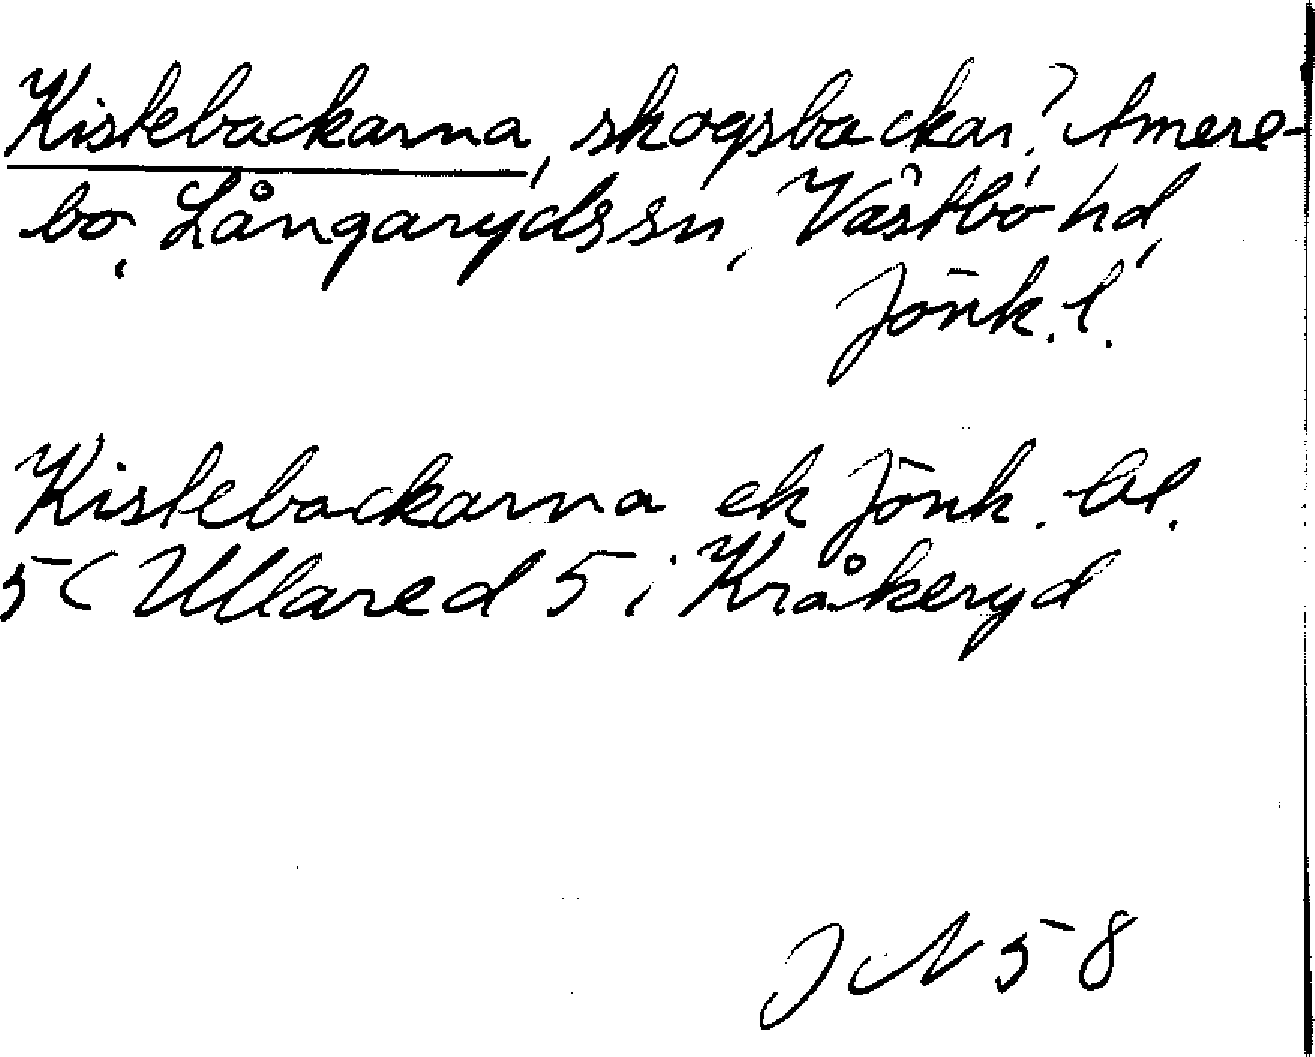 Kistebackarna, skogsbackar? Amere-
bo, Långaryds sn, Västbo hd,
Jönk. l.
Kistebackarna ek Jönk. bl.
5 (Ullared 5 i Kråkeryd
JN 58